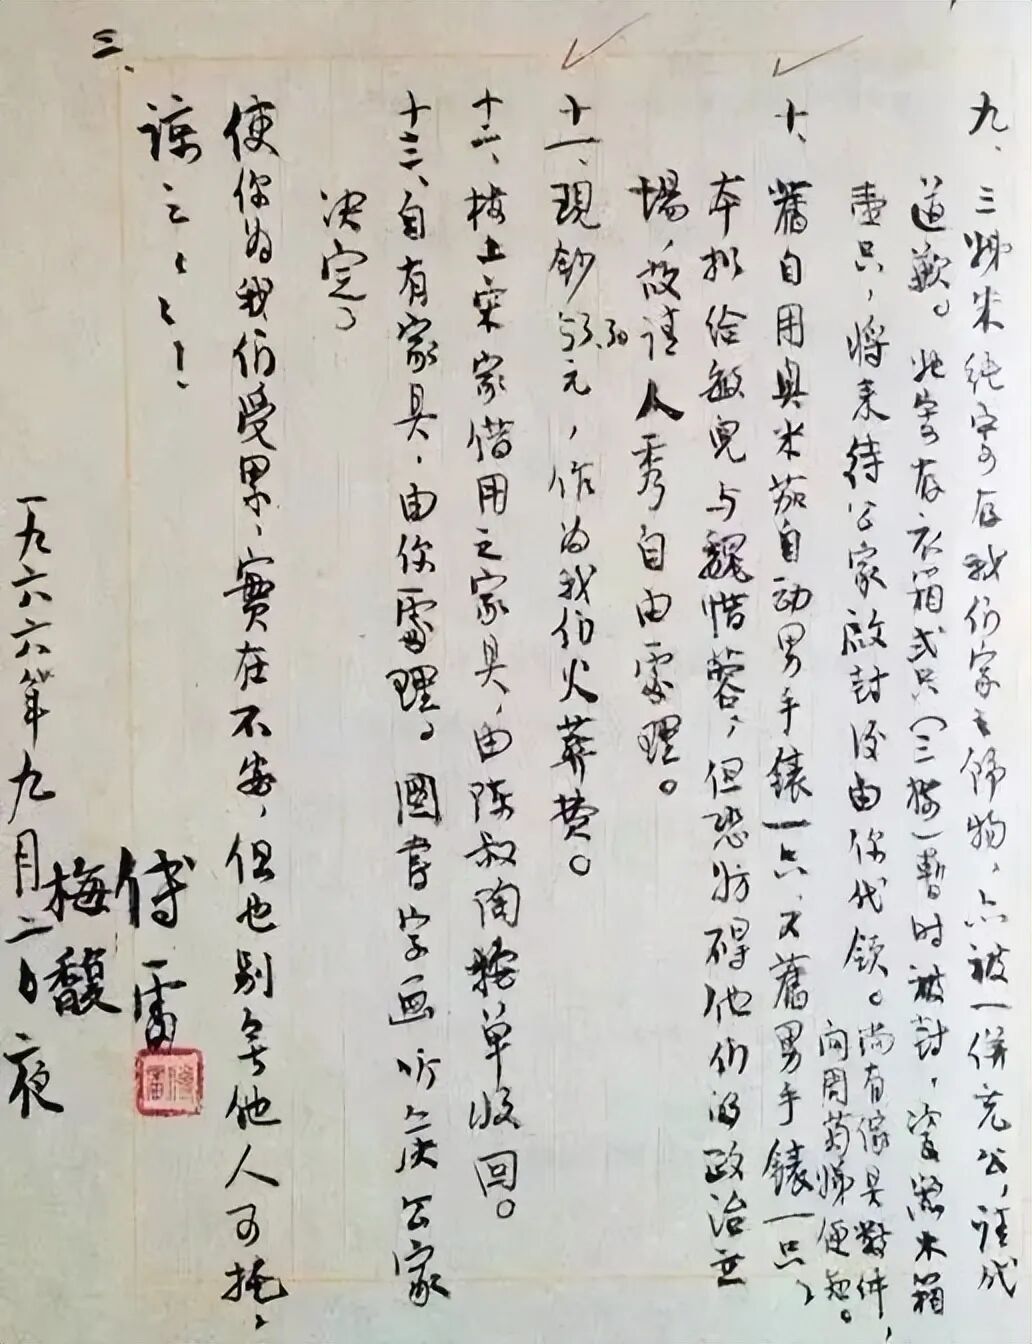 三、
九、三姊朱纯寄存我们家之饰物，亦被一併充公，请代
道歉。她寄存衣箱弍只（三楼）暂时被封，瓷器木箱
壹只，将来待公家啟封後由你代领。尚有傢具数件，
问周菊娣便知。
十、舊自用奥米茄自动男手錶一只，又舊男手錶一只，
本拟给敏兒与魏惜蓉，但恐妨碍他们的政治立
場，故请人秀自由處理。
十一、現鈔53.30元，作为我们火葬费。
十二、楼上宋家借用之家具，由陈叔陶按单收回。
十三、自有家具，由你處理。圖書字画听候公家
决定。
使你为我们受累，實在不安，但也别無他人可托，
谅之谅之！
傅雷
梅馥
一九六六年九月二日夜